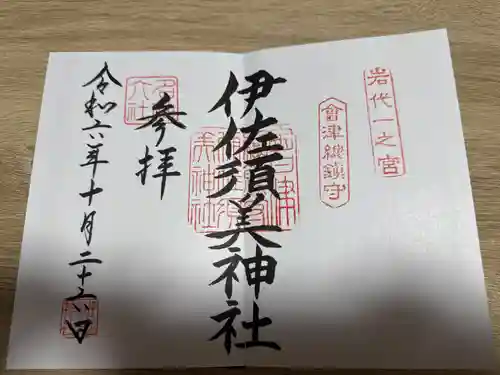 岩代一之宮
會津總鎮守
伊佐須美神社
参拝
令和六年十月二十六日